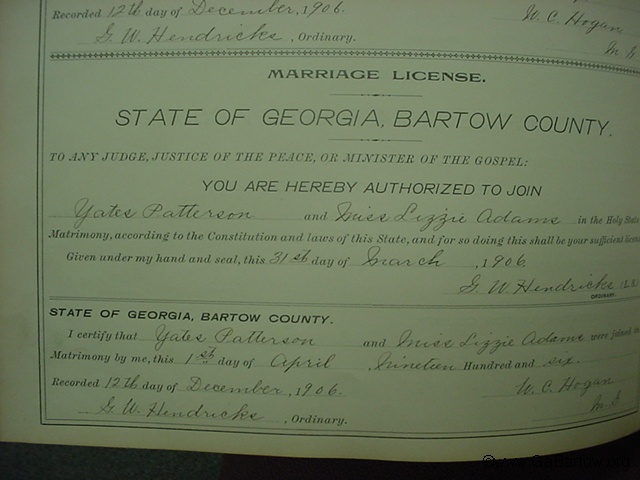 Recorded 12th day of December, 1906. W. C. Hogan
G. W. Hendricks, Ordinary. M. G.
MARRIAGE LICENSE.
STATE OF GEORGIA, BARTOW COUNTY.
TO ANY JUDGE, JUSTICE OF THE PEACE, OR MINISTER OF THE GOSPEL:
YOU ARE HEREBY AUTHORIZED TO JOIN
Yates Patterson and Miss Lizzie Adams in the Holy State
Matrimony, according to the Constitution and laws of this State, and for so doing this shall be your sufficient
Given under my hand and seal, this 31st day of March, 1906.
G. W. Hendricks (L. S.
ORDINARY.
STATE OF GEORGIA, BARTOW COUNTY.
I certify that Yates Patterson and Miss Lizzie Adams were joined in
Matrimony by me, this 1st day of April, Nineteen Hundred and six.
Recorded 12th day of December, 1906. W. C. Hogan
G. W. Hendricks, Ordinary. M. G.